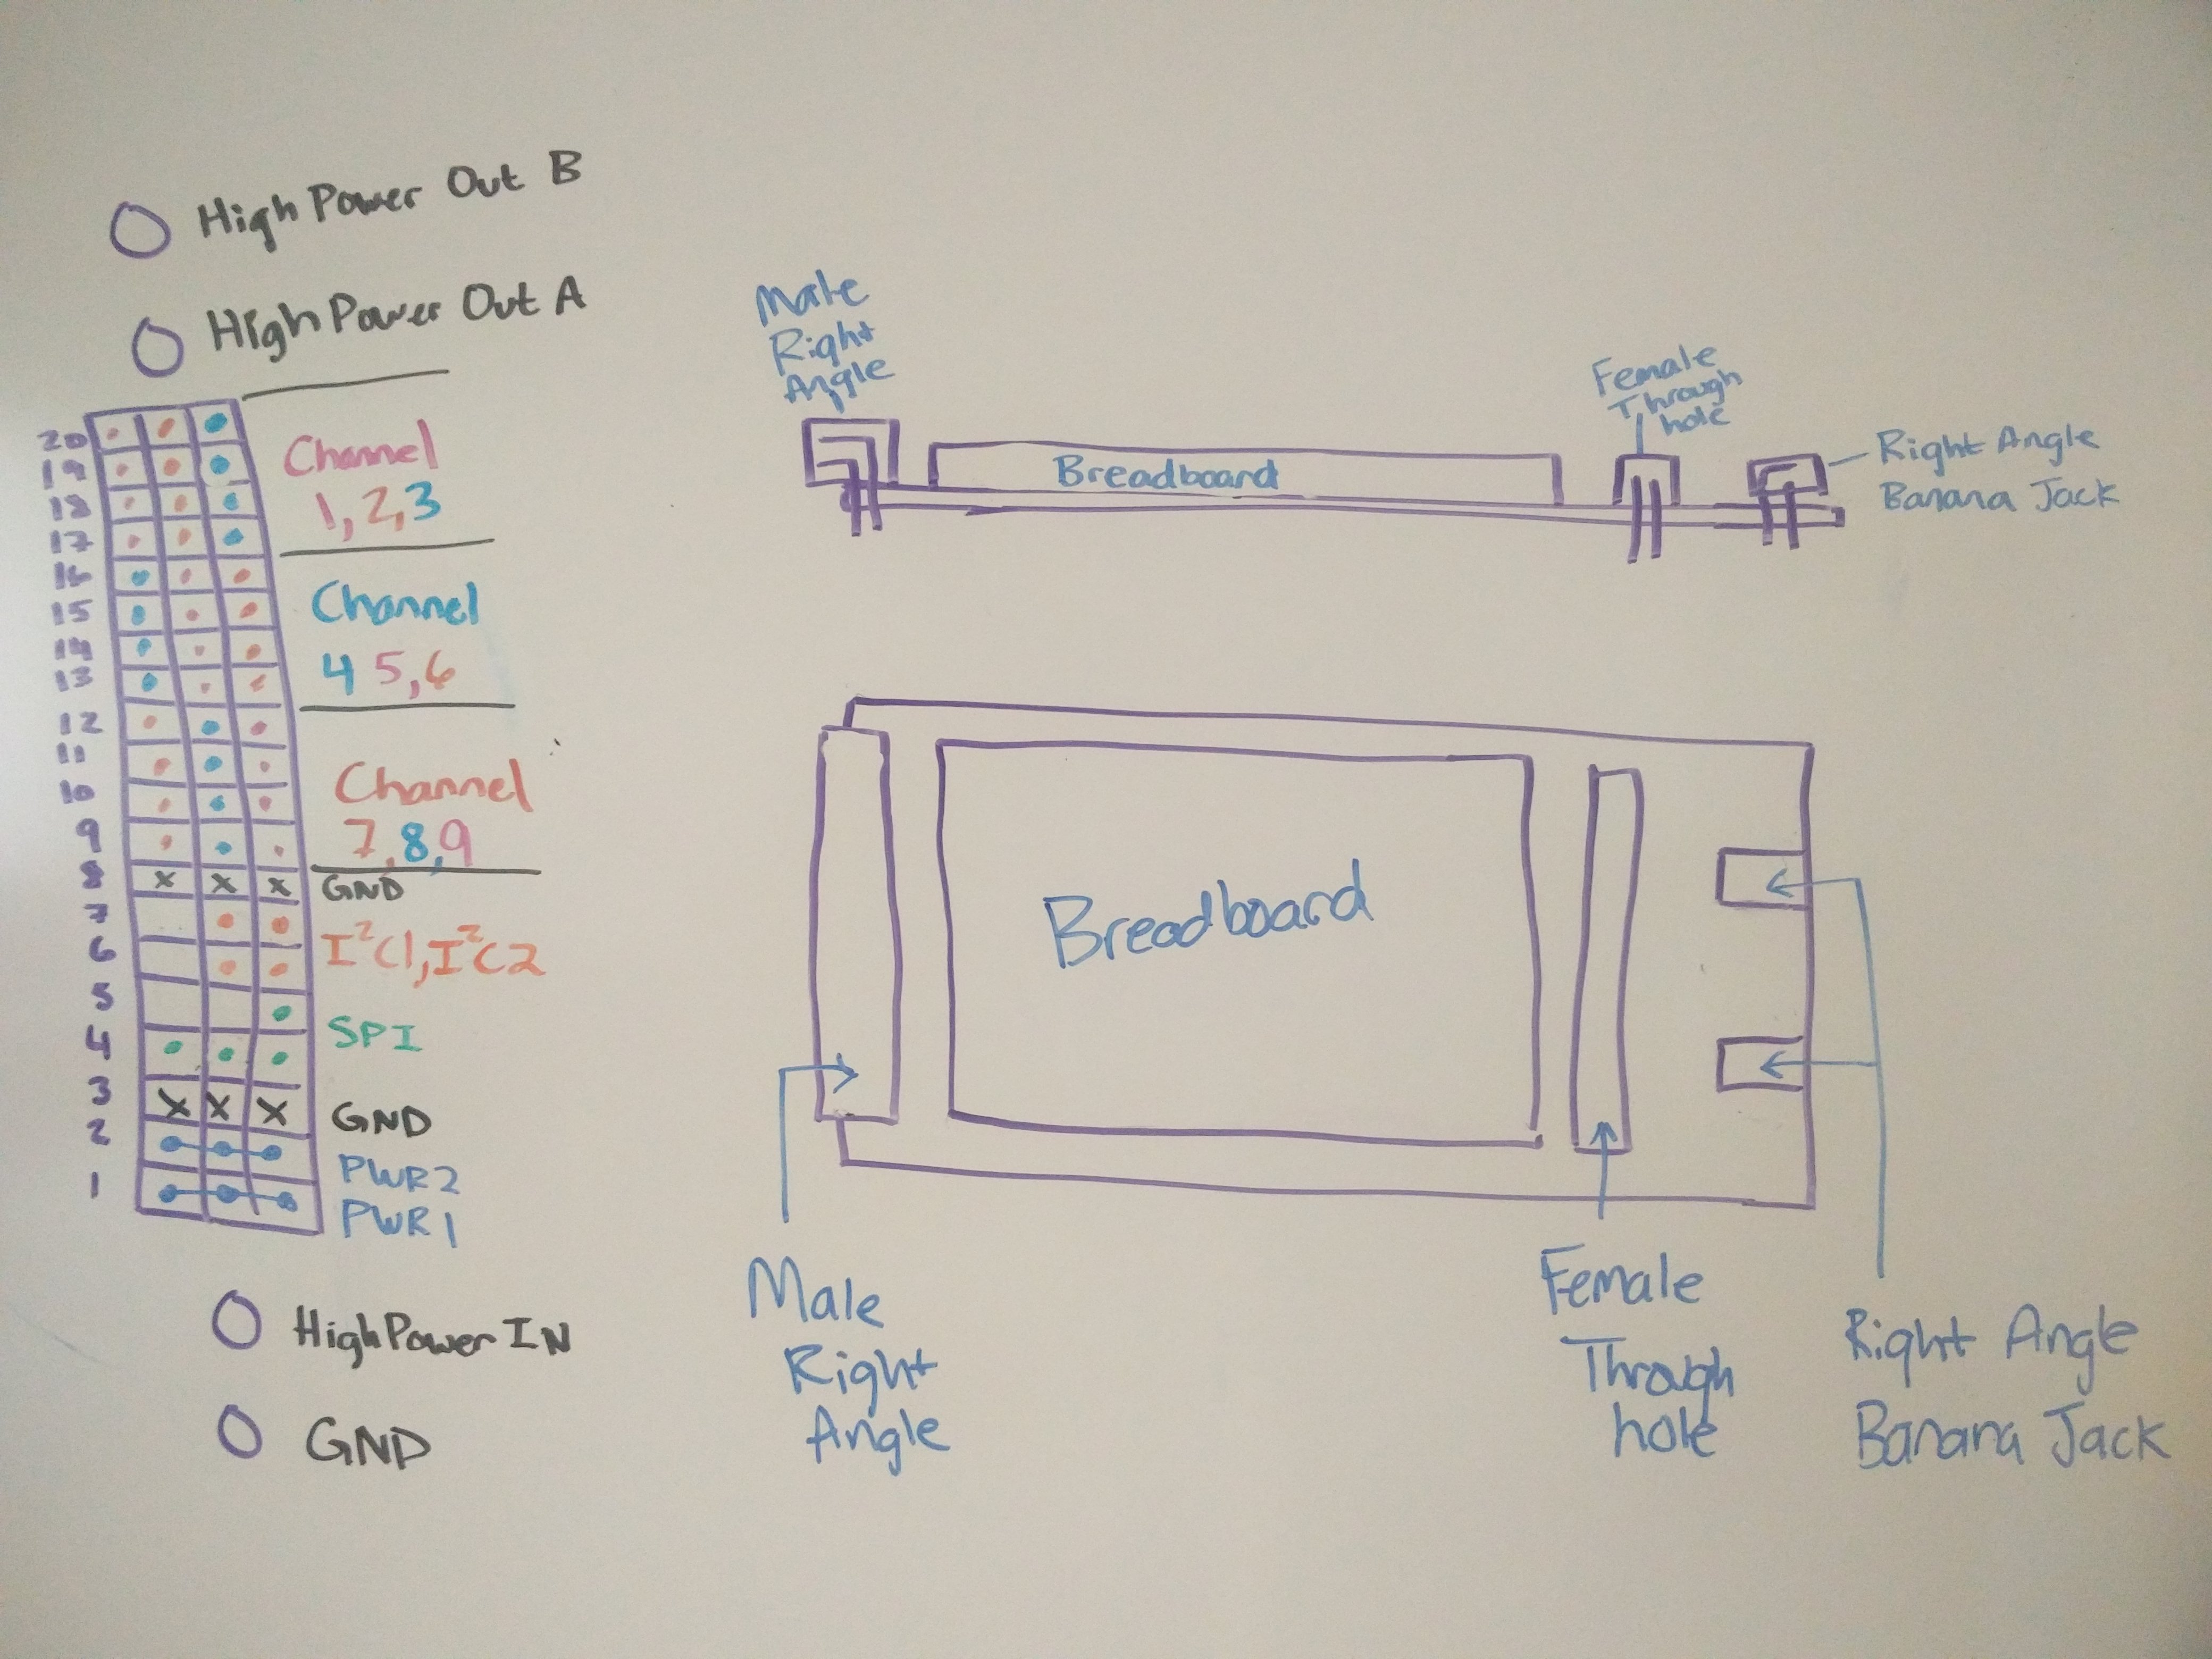 High Power Out B
High Power Out A
20
19
18
17
16
15
14
13
12
11
10
9
8
7
6
5
4
3
2
1
Channel
1, 2, 3
Channel
4 5, 6
Channel
7, 8, 9
x x x GND
I²C1, I²C2
SPI
X X X GND
PWR2
PWR1
High Power IN
GND
Male
Right
Angle
Breadboard
Female
Through
hole
Right Angle
Banana Jack
Breadboard
Male
Right
Angle
Female
Through
hole
Right Angle
Banana Jack